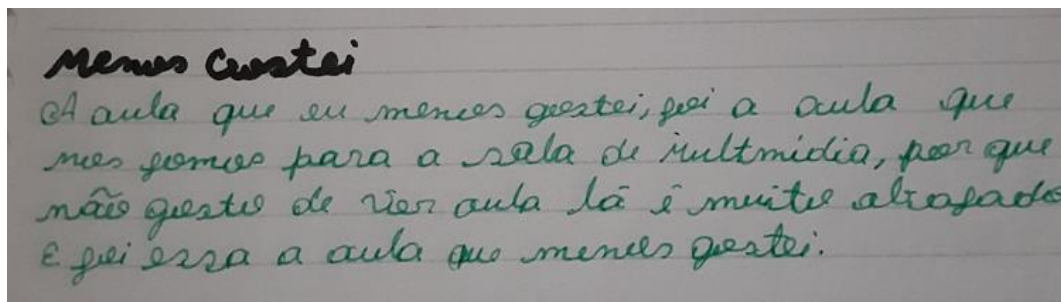 Menos Gostei
A aula que eu menos gostei, foi a aula que
nos fomos para a sala de multmidia, por que
não gosto de vier aula lá é muito abafado
E foi essa a aula que menos gostei.